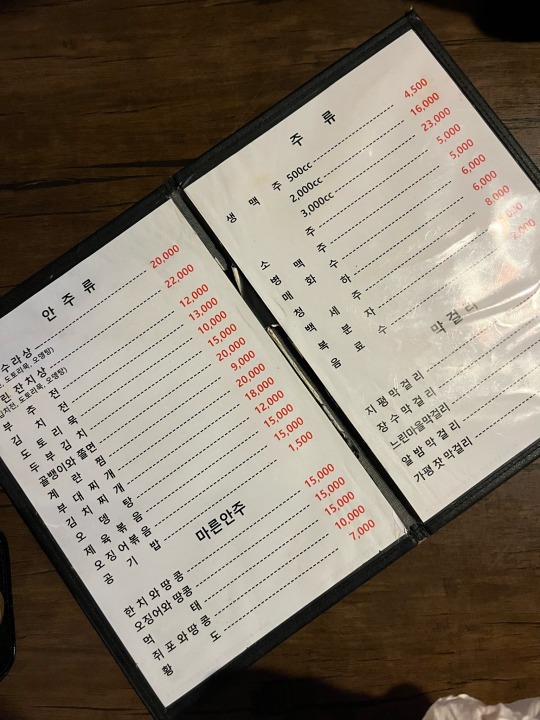 안 주 류
수라상 20,000
도토리묵, 오뎅탕)
린 잔치상 22,000
도토리묵, 오뎅탕)
부 추 전 12,000
김 치 전 13,000
도 토 리 묵 10,000
두 부 김 치 15,000
골뱅이와 쫄면 20,000
계 란 찜 9,000
부 대 찌 개 20,000
김 치 찌 개 18,000
오 뎅 탕 12,000
제 육 볶 음 15,000
오징어볶음 15,000
공 기 밥 1,500
마른안주
한 치 와 땅 콩 15,000
오징어와 땅콩 15,000
먹 태 15,000
쥐 포 와 땅 콩 10,000
황 도 7,000
주 류
생 맥 주 500cc 4,500
2,000cc 16,000
3,000cc 23,000
소 주 5,000
병 맥 주 5,000
매 화 수 6,000
청 하 6,000
백 세 주 8,000
복 분 자
음 료 수 2,000
막 걸 리
지 평 막 걸 리
장 수 막 걸 리
느린마을막걸리
알 밤 막 걸 리
가평 잣 막걸리